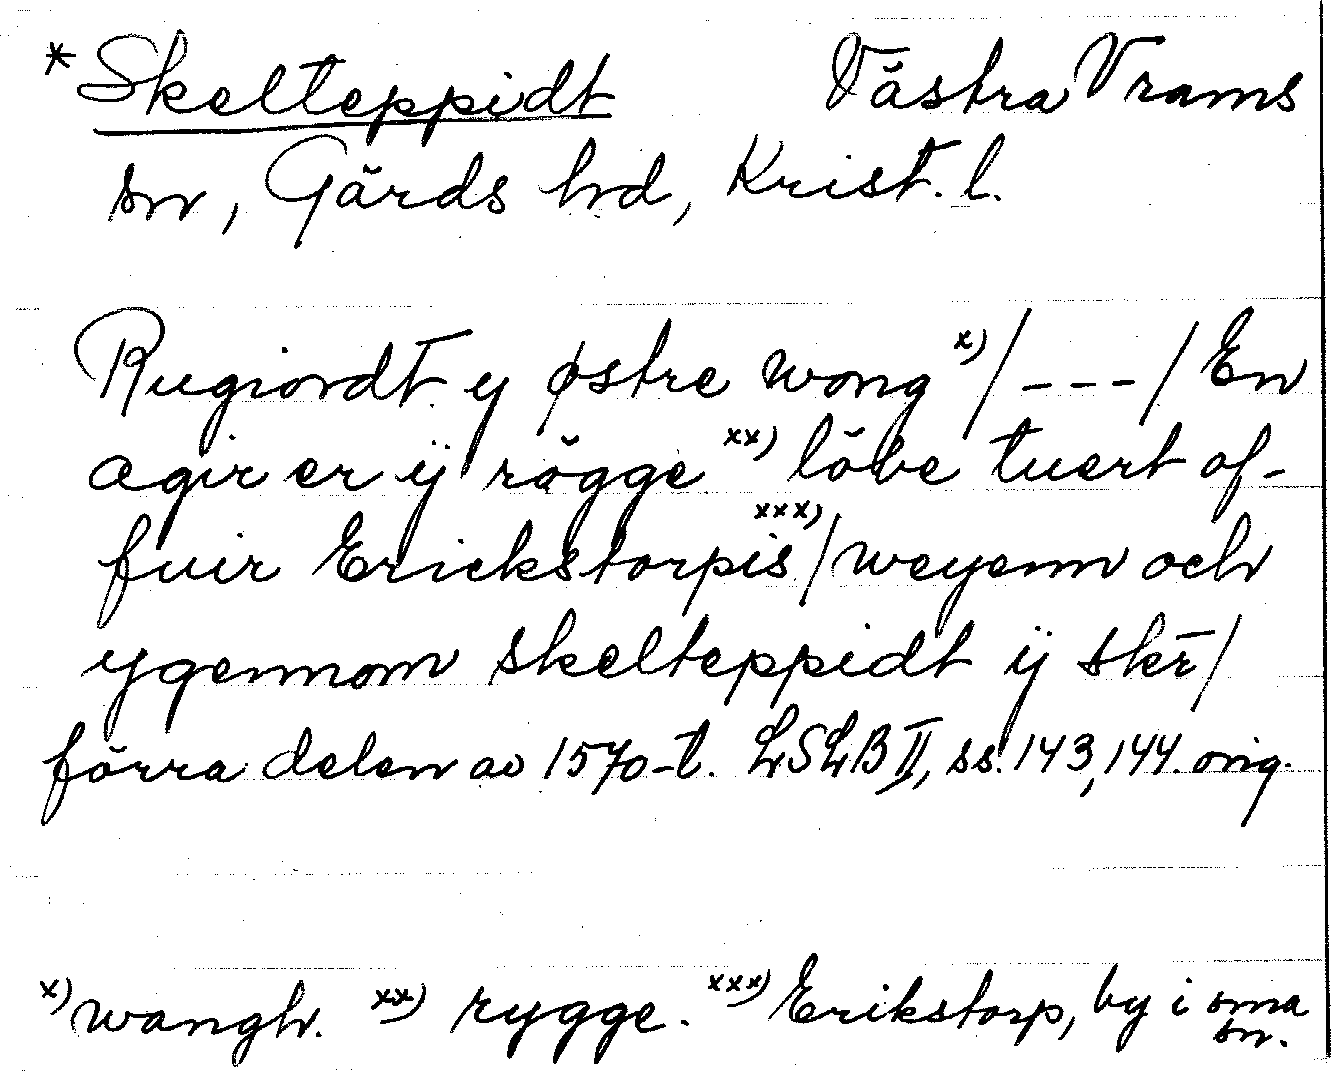 *Skelteppidt Västra Vrams
sn, Gärds hrd, Krist. l.
Rugiordt y østre wong x) / --- / En
agir er ÿ rögge xx) löbe tuert of-
fuir Erickstorpis xxx) / weyenn och
ygennom skelteppidt ÿ skr̄ /
förra delen av 1570-t. LSLB II, ss. 143, 144. orig.
x) wangh. xx) rygge. xxx) Erikstorp, by i sma
sn.